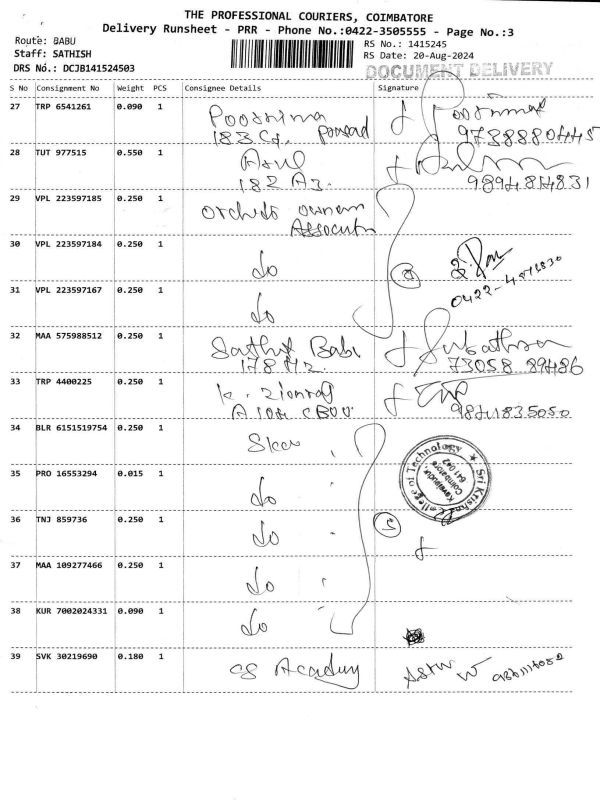 THE PROFESSIONAL COURIERS, COIMBATORE
Delivery Runsheet - PRR - Phone No.:0422-3505555 - Page No.:3
Route: BABU
Staff: SATHISH
DRS No.: DCJB141524503
RS No.: 1415245
RS Date: 20-Aug-2024
DOCUMENT DELIVERY
S No Consignment No Weight PCS Consignee Details Signature
27 TRP 6541261 0.090 1 Poornima Poornima
183 G, Prasad 9738880445
28 TUT 977515 0.550 1 Arul
182 A3. 9894814831
29 VPL 223597185 0.250 1 Orchids owners
Association
30 VPL 223597184 0.250 1 do 3
0422-
31 VPL 223597167 0.250 1 do
32 MAA 575988512 0.250 1 Sathis Babu
178 H2. 73058 89486
33 TRP 4400225 0.250 1 K.
9841835050
34 BLR 6151519754 0.250 1 Skcet
Sri Krishna College of Technology
Kovaipudur,
Coimbatore
641 042
35 PRO 16553294 0.015 1 do
36 TNJ 859736 0.250 1 do 5
37 MAA 109277466 0.250 1 do
38 KUR 7002024331 0.090 1 do
39 SVK 30219690 0.180 1 CS Academy